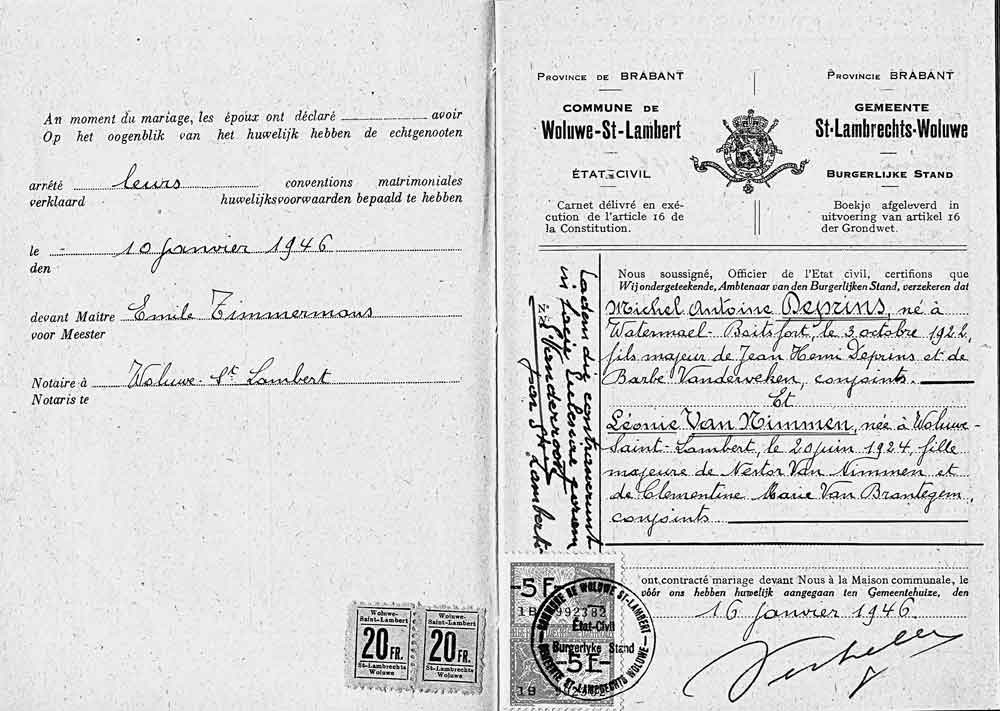 An moment du mariage, les époux ont déclaré avoir
Op het oogenblik van het huwelijk hebben de echtgenooten
arrêté leurs conventions matrimoniales
verklaard huwelijksvoorwaarden bepaald te hebben
le 10 janvier 1946
den
devant Maître Emile Timmermans
voor Meester
Notaire à Woluwe-St Lambert
Notaris te
Woluwe-
Saint-Lambert
20 FR.
St-Lambrechts
Woluwe
Woluwe-
Saint-Lambert
20 FR.
St-Lambrechts
Woluwe
PROVINCE DE BRABANT
COMMUNE DE
Woluwe-St-Lambert
ÉTAT-CIVIL
Carnet délivré en exé-
cution de l'article 16 de
la Constitution.
PROVINCIE BRABANT
GEMEENTE
St-Lambrechts-Woluwe
BURGERLIJKE STAND
Boekje afgeleverd in
uitvoering van artikel 16
der Grondwet.
eadem die contraxerunt
in facie Ecclesiae coram
Vanderroost
St Lamberti
Nous soussigné, Officier de l'Etat civil, certifions que
Wij ondergeteekende, Ambtenaar van den Burgerlijken Stand, verzekeren dat
Michel Antoine Deprins, né à
Watermael-Boitsfort, le 3 octobre 1922,
fils majeur de Jean Henri Deprins et de
Barbe Vanderveken, conjoints.
Et
Léonie Van Nimmen, née à Woluwe-
Saint-Lambert, le 20 juin 1924, fille
majeure de Nestor Van Nimmen et
de Clementine Marie Van Brantegem,
conjoints
ont contracté mariage devant Nous à la Maison communale, le
vóór ons hebben huwelijk aangegaan ten Gemeentehuize, den
16 janvier 1946.
5F
18 992382
COMMUNE DE WOLUWE ST-LAMBERT
État-Civil
Burgerlyke Stand
GEMEENTE ST-LAMBRECHTS WOLUWE
5F
18